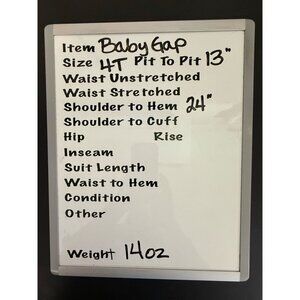 Item Baby Gap
Size 4T Pit To Pit 13"
Waist Unstretched
Waist Stretched
Shoulder to Hem 24"
Shoulder to Cuff
Hip Rise
Inseam
Suit Length
Waist to Hem
Condition
Other
Weight 14oz